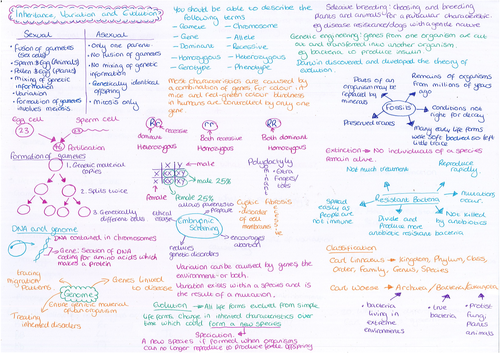 Inheritance, Variation and Evolution
Sexual
Asexual
• Fusion of gametes
(sex cells)
• Sperm & Egg (Animals)
• Pollen & Egg (Plants)
• Mixing of genetic
information
• Variation
• Formation of gametes
involves meiosis
• Only one parent
• No fusion of gametes
• No mixing of genetic
information
• Genetically identical
offspring
• mitosis only
You should be able to describe the
following terms
- Gamete
- Chromosome
- Gene
- Allele
- Dominant
- Recessive
- Homozygous
- Heterozygous
- Genotype
- Phenotype
Most characteristics are caused by
a combination of genes. Fur colour in
mice and red-green colour blindness
in humans are controlled by only one
gene
Selective breeding: choosing and breeding
plants and animals for a particular characteristic
eg disease resistance/dogs with a gentle nature
Genetic engineering: genes from one organism are cut
out and transferred into another organism
eg bacteria to produce insulin
Darwin discovered and developed the theory of
evolution.
Parts of an
organism may be
replaced by
minerals
Remains of organisms
from millions of years
ago
Fossils
Conditions not
right for decay
Preserved traces
Many early life forms
were soft bodied so left
little trace
Extinction → No individuals of a species
remain alive.
Egg cell
Sperm cell
23
23
46
Fertilisation
Formation of gametes
1. Genetic material
copies
2. Splits twice
3. Genetically
different cells
Rr
recessive
dominant
Heterozygous
rr
Both recessive
Homozygous
RR
Both dominant
Homozygous
X Y
X XX XY
X XX XY
male
male 25%
Female
Female 25%
Polydactyly
Extra
fingers/
toes
Cystic fibrosis
disorder
of cell
membrane
allows parents to
prepare
Embryonic
Screening
encourages
abortion
reduces
genetic disorders
DNA and genome
DNA contained in chromosomes
Gene: Section of DNA
coding for amino acids which
makes a protein
tracing
migration
patterns
Genes linked
to disease
Genome
Entire genetic material
of an organism
Treating
inherited disorders
Variation can be caused by genes the
environment or both.
Variation exists within a species and is
the result of a mutation.
Evolution → All life forms evolved from simple
life forms. Change in inherited characteristics over
time which could form a new species
Speciation
A new species is formed when organisms
can no longer reproduce to produce fertile offspring
Not much treatment
Reproduce
rapidly
Spreads
easily as
People are
not immune
Resistant Bacteria
mutations
occur.
Divide and
Produce more
antibiotic resistant bacteria
Not killed by
antibiotics
Classification
Carl Linnaeus → Kingdom, Phylum, Class,
Order, Family, Genus, Species
Carl Woese → Archaea / Bacteria / Eukaryota
• bacteria
living in
extreme
environments
• true
bacteria
• Protists
fungi
plants
animals